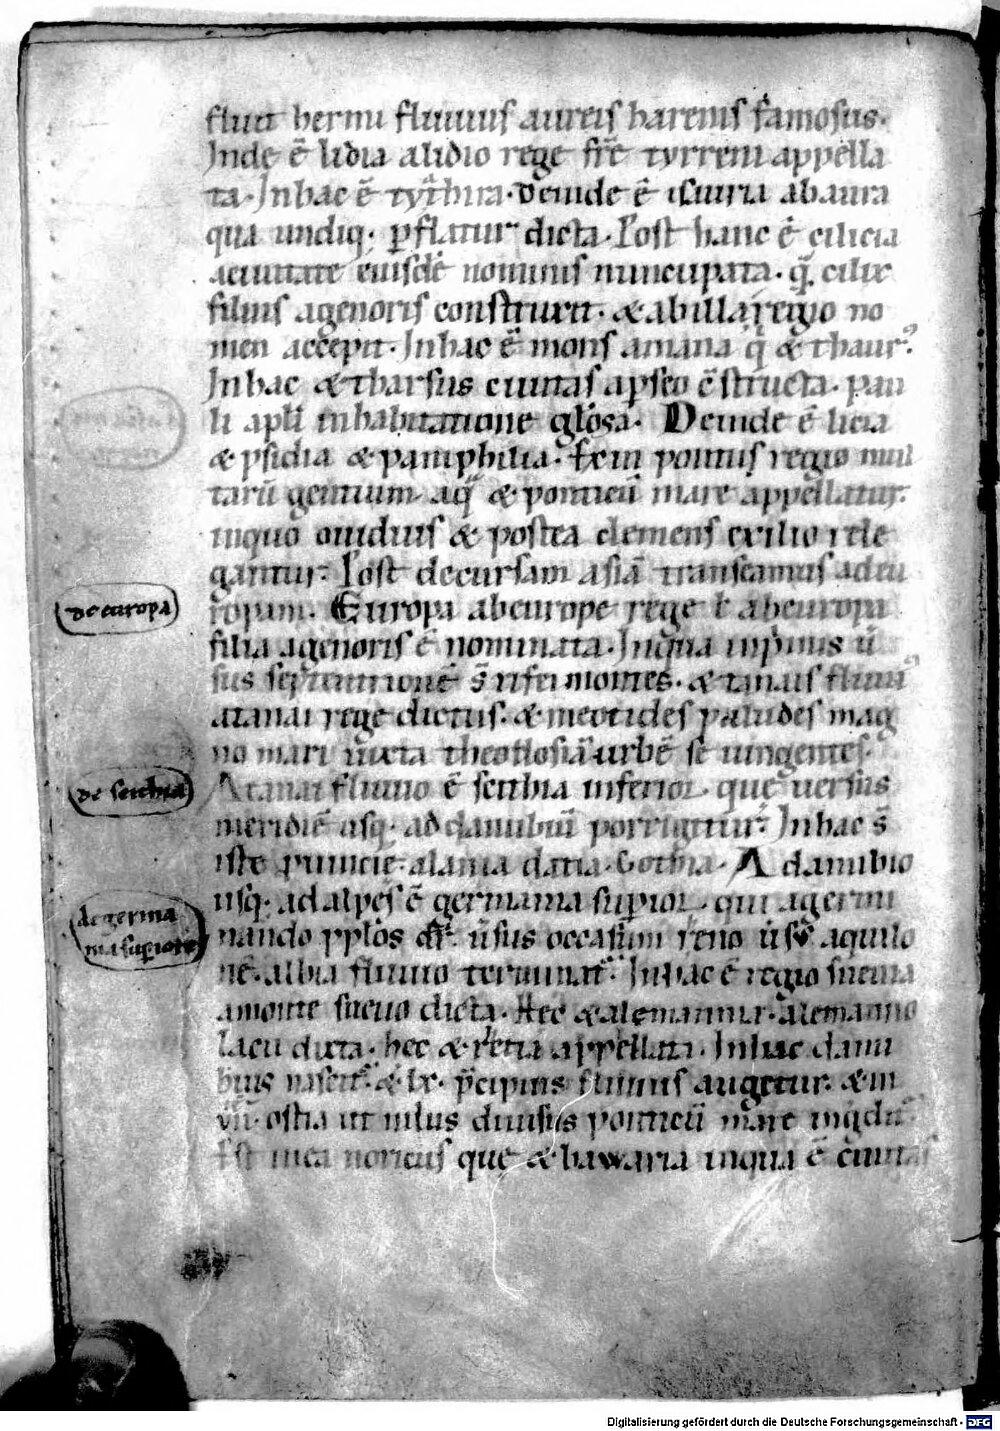 fluit hermi fluuius aureis harenis famosus.
Inde ē lidia a lidio rege fr̄e tyrreni appella
ta. In hac ē tyathira. Deinde ē isauria ab aura
qua undiq. ꝑflatur dicta. Post hanc ē cilicia
a ciuitate eiusdē nominis nuncupata. q̄ cilix
filius agenoris construxit. & ab illa regio no
men accepit. In hac ē mons amana q̄ & thaurꝰ.
In hac & tharsus ciuitas a pseo ē structa. pau
li apli inhabitatione gl̄osa. Deinde ē licia
& psidia & pamphilia. Exin pontus regio mul
tarū gentium. a q̄ & ponticū mare appellatur.
in quo ouidius & postea clemens exilio rele
gantur. Post decursam asiā transeamus ad eu
ropam. Europa ab europe rege ł ab europa
filia agenoris ē nominata. In qua inprimis ū
sus septentrionē s̄ rifei montes. & tanais fluuiꝰ
a tanai rege dictus. & meotides paludes mag
no mari iuxta theodosiā urbē se iungentes.
A tanai fluuio ē scithia inferior. que uersus
meridiē usq. ad danubiū porrigitur. In hac s̄
iste ꝓuincie. alania. datia. Gothia. A danubio
usq. ad alpes ē germania supior. qui a germi
nando pplōs dr̄. ūsus occasum reno ūsꝰ aquilo
nē. albia fluuio terminatʳ. In hac ē regio sueuia
a monte sueuo dicta. Hec & alemannia. alemanno
lacu dicta. hec & retia appellata. In hac danu
bius nascitʳ. & lx. p̄cipuis fluuiis augetur. & in
vii. ostia ut nilus diuisus ponticū mare ingditʳ
Est in ea noricus que & bawaria in qua ē ciuitas
de europa
de scithia
de germa
nia supiore
Digitalisierung gefördert durch die Deutsche Forschungsgemeinschaft - DFG